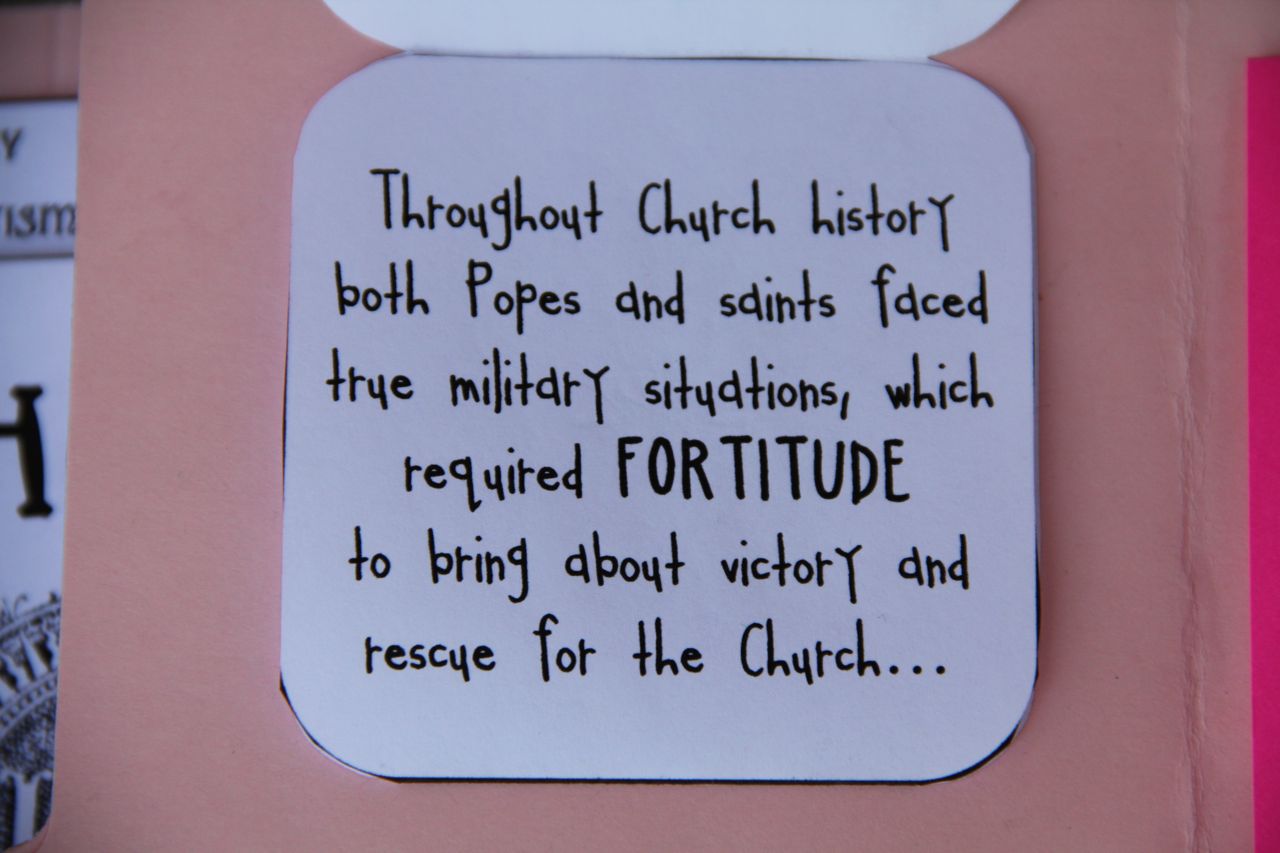 Throughout Church history
both Popes and saints faced
true military situations, which
required FORTITUDE
to bring about victory and
rescue for the Church...